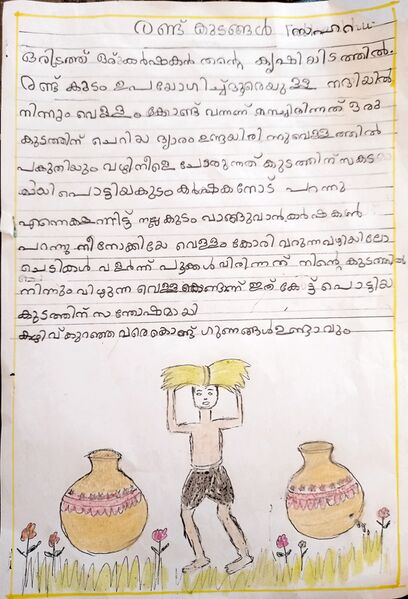 രണ്ട് കുടങ്ങൾ
ഒരിടത്ത് ഒരു കർഷകൻ തന്റെ കൃഷിയിടത്തിൽ
രണ്ട് കുടം ഉപയോഗിച്ച് ദൂരെയുള്ള നദിയിൽ
നിന്നും വെള്ളം കോണ്ട് വന്നത് ഒരു
കുടത്തിന് ചെറിയ ദ്വാരം ഉണ്ടയിരിന്നു വെള്ളത്തിൽ
പകുതിയും വഴിനീളെ ചോരുന്നത് കുടത്തിന് സങ്കട
മായി പൊട്ടിയകുടം കർഷകനോട് പറന്നു
എന്നെകളന്നിട്ട് നല്ല കുടം വാങ്ങുവാൻ കർഷകൻ
പറന്നു നീ നോക്കിയേ വെള്ളം കോരി വരുന്നവഴിയിലോ
ചെടികൾ വളർന്ന് പൂക്കൾ വിരിന്നന്ന് നിന്റെ കുടത്തിൽ
നിന്നും വിഴുന്ന വെള്ളക്കൊണ്ടന്ന് ഇത് കേട്ട് പൊട്ടിയ
കുടത്തിന് സന്തോഷമായി
കഴിവ് കുറഞ്ഞവരെകൊണ്ടും ഗുണങ്ങൾ ഉണ്ടാവും